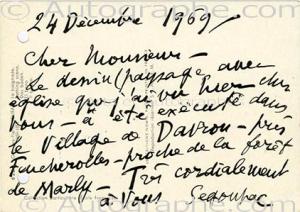 24 Décembre 1969/
Cher Monsieur –
Le dessin (paysage avec
église que j'ai vu hier chez
vous – a été exécuté dans
le Village de Davron – près
Feucherolles – proche de la forêt
de Marly – Très cordialement
à vous Segonzac.